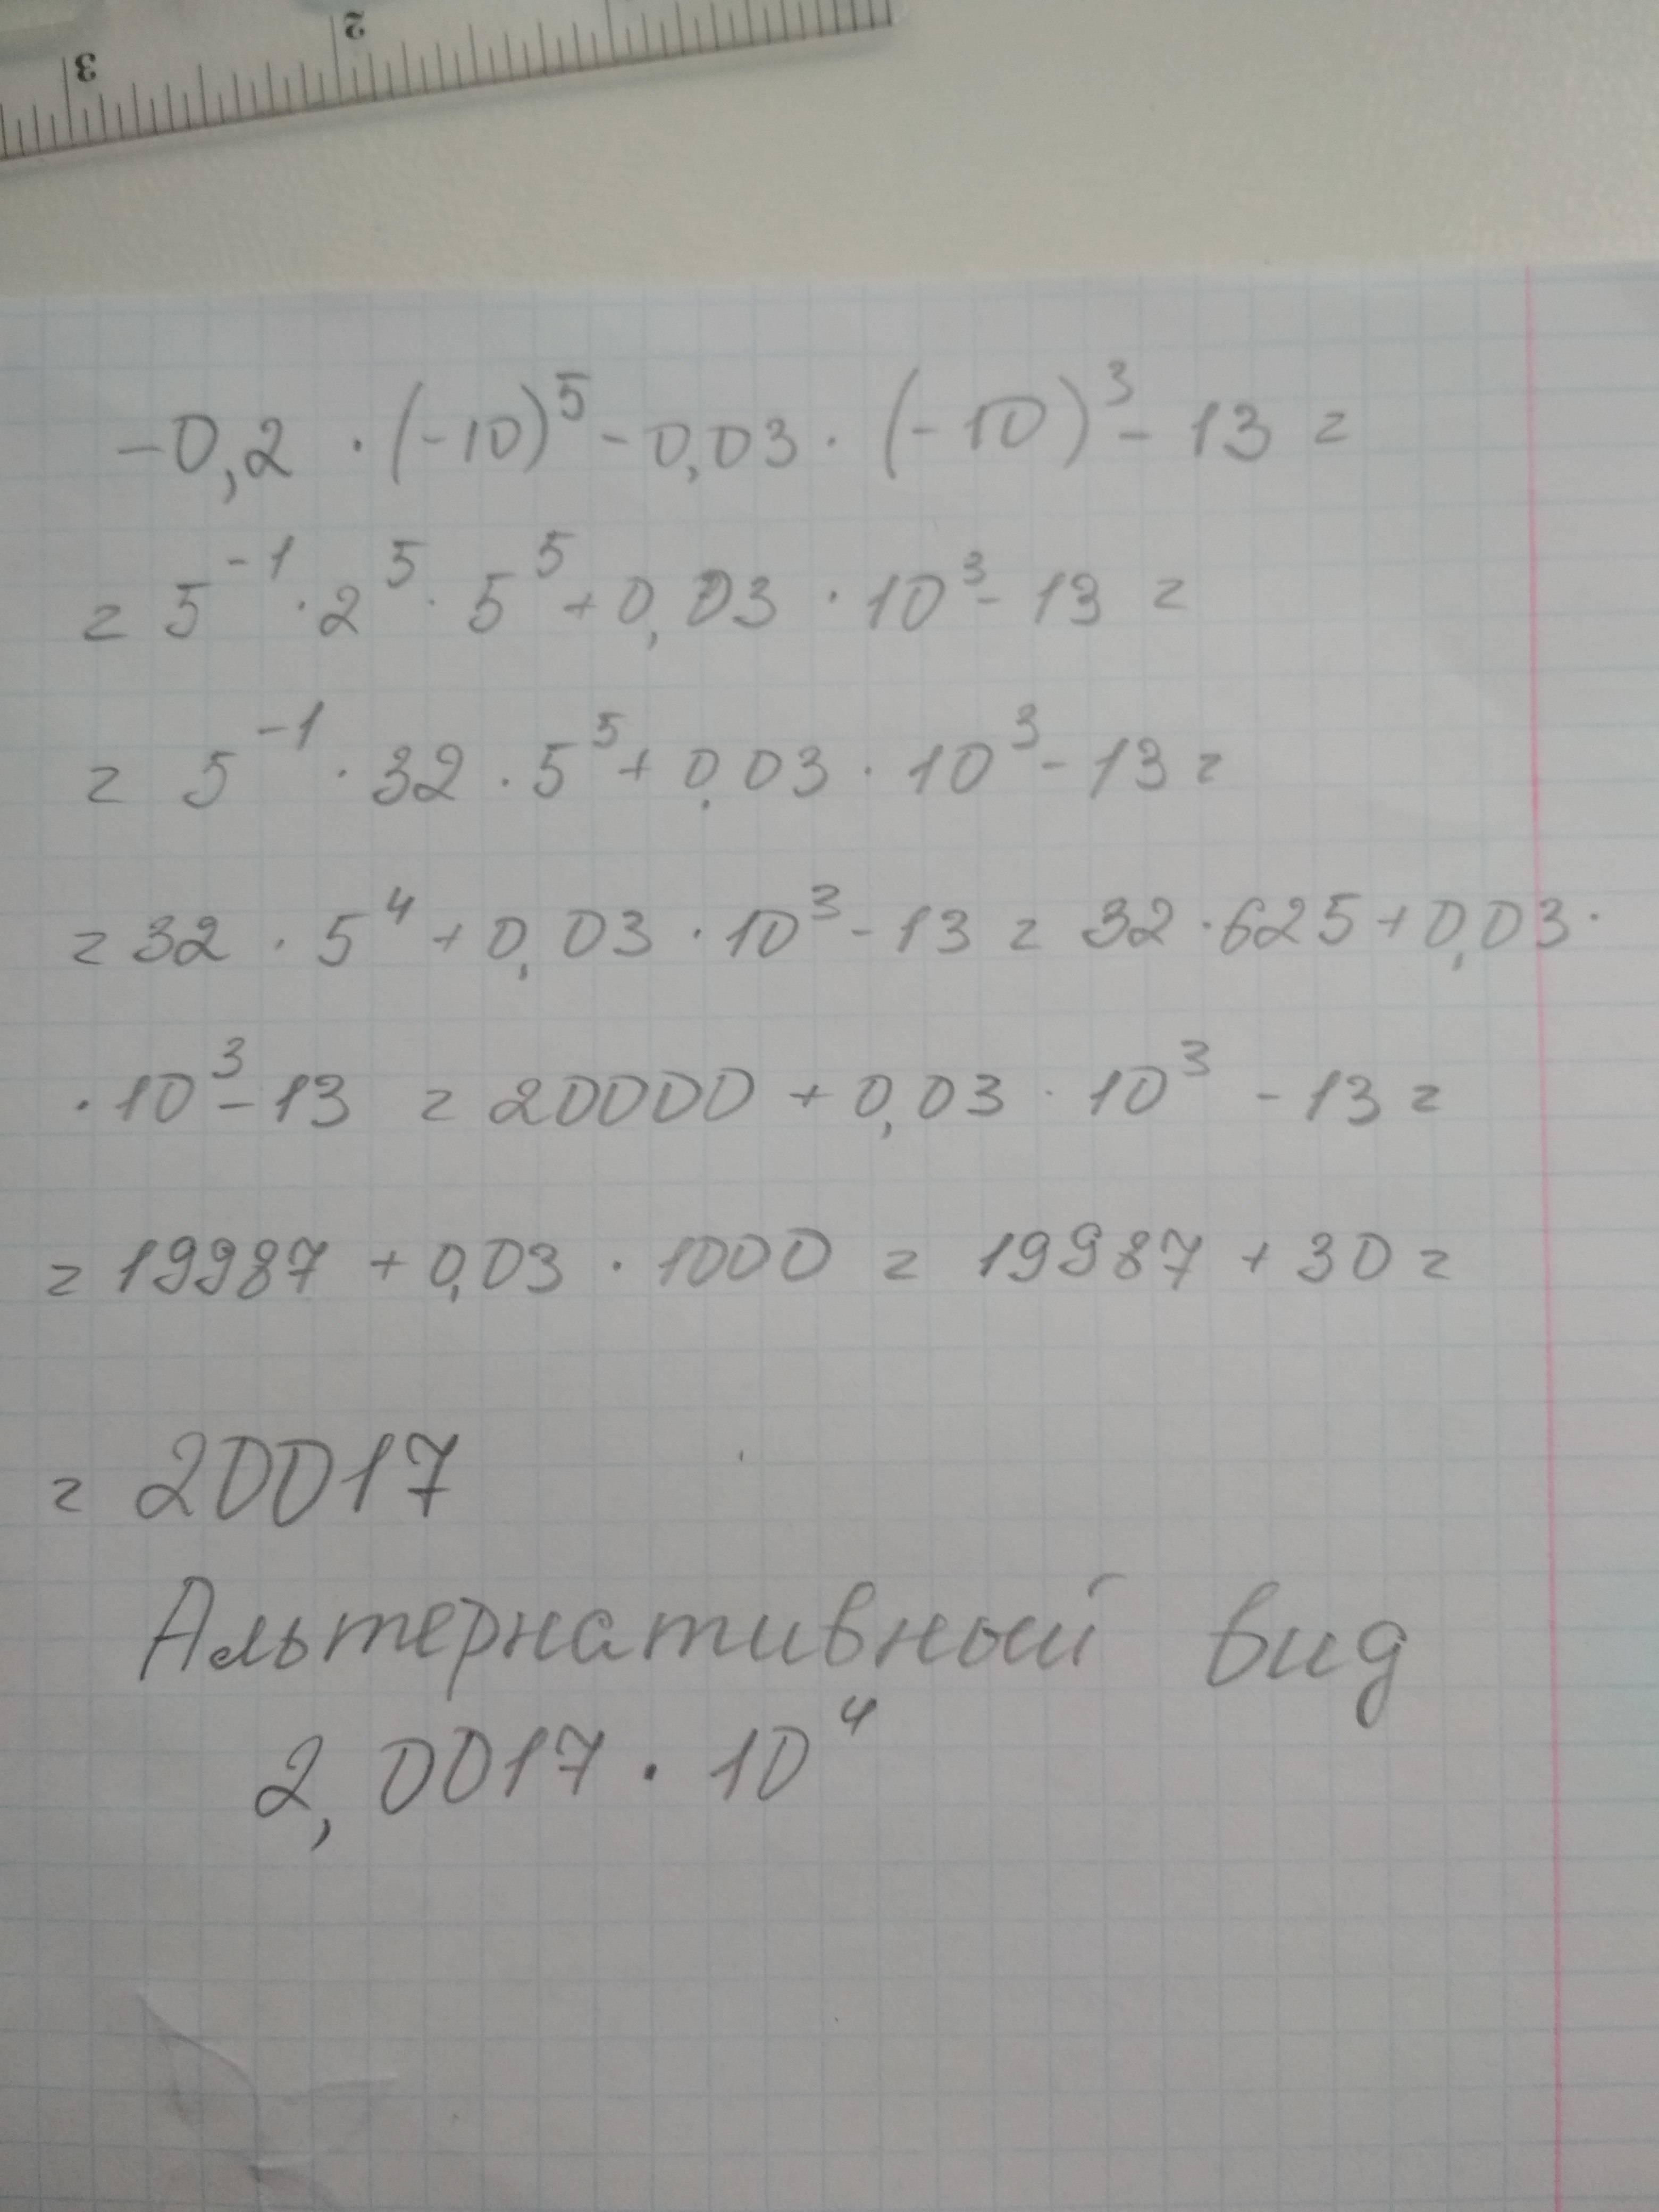 3 2
-0,2 · (-10)⁵ - 0,03 · (-10)³ - 13 =
= 5⁻¹ · 2⁵ · 5⁵ + 0,03 · 10³ - 13 =
= 5⁻¹ · 32 · 5⁵ + 0,03 · 10³ - 13 =
= 32 · 5⁴ + 0,03 · 10³ - 13 = 32 · 625 + 0,03 ·
· 10³ - 13 = 20000 + 0,03 · 10³ - 13 =
= 19987 + 0,03 · 1000 = 19987 + 30 =
= 20017
Альтернативный вид
2,0017 · 10⁴